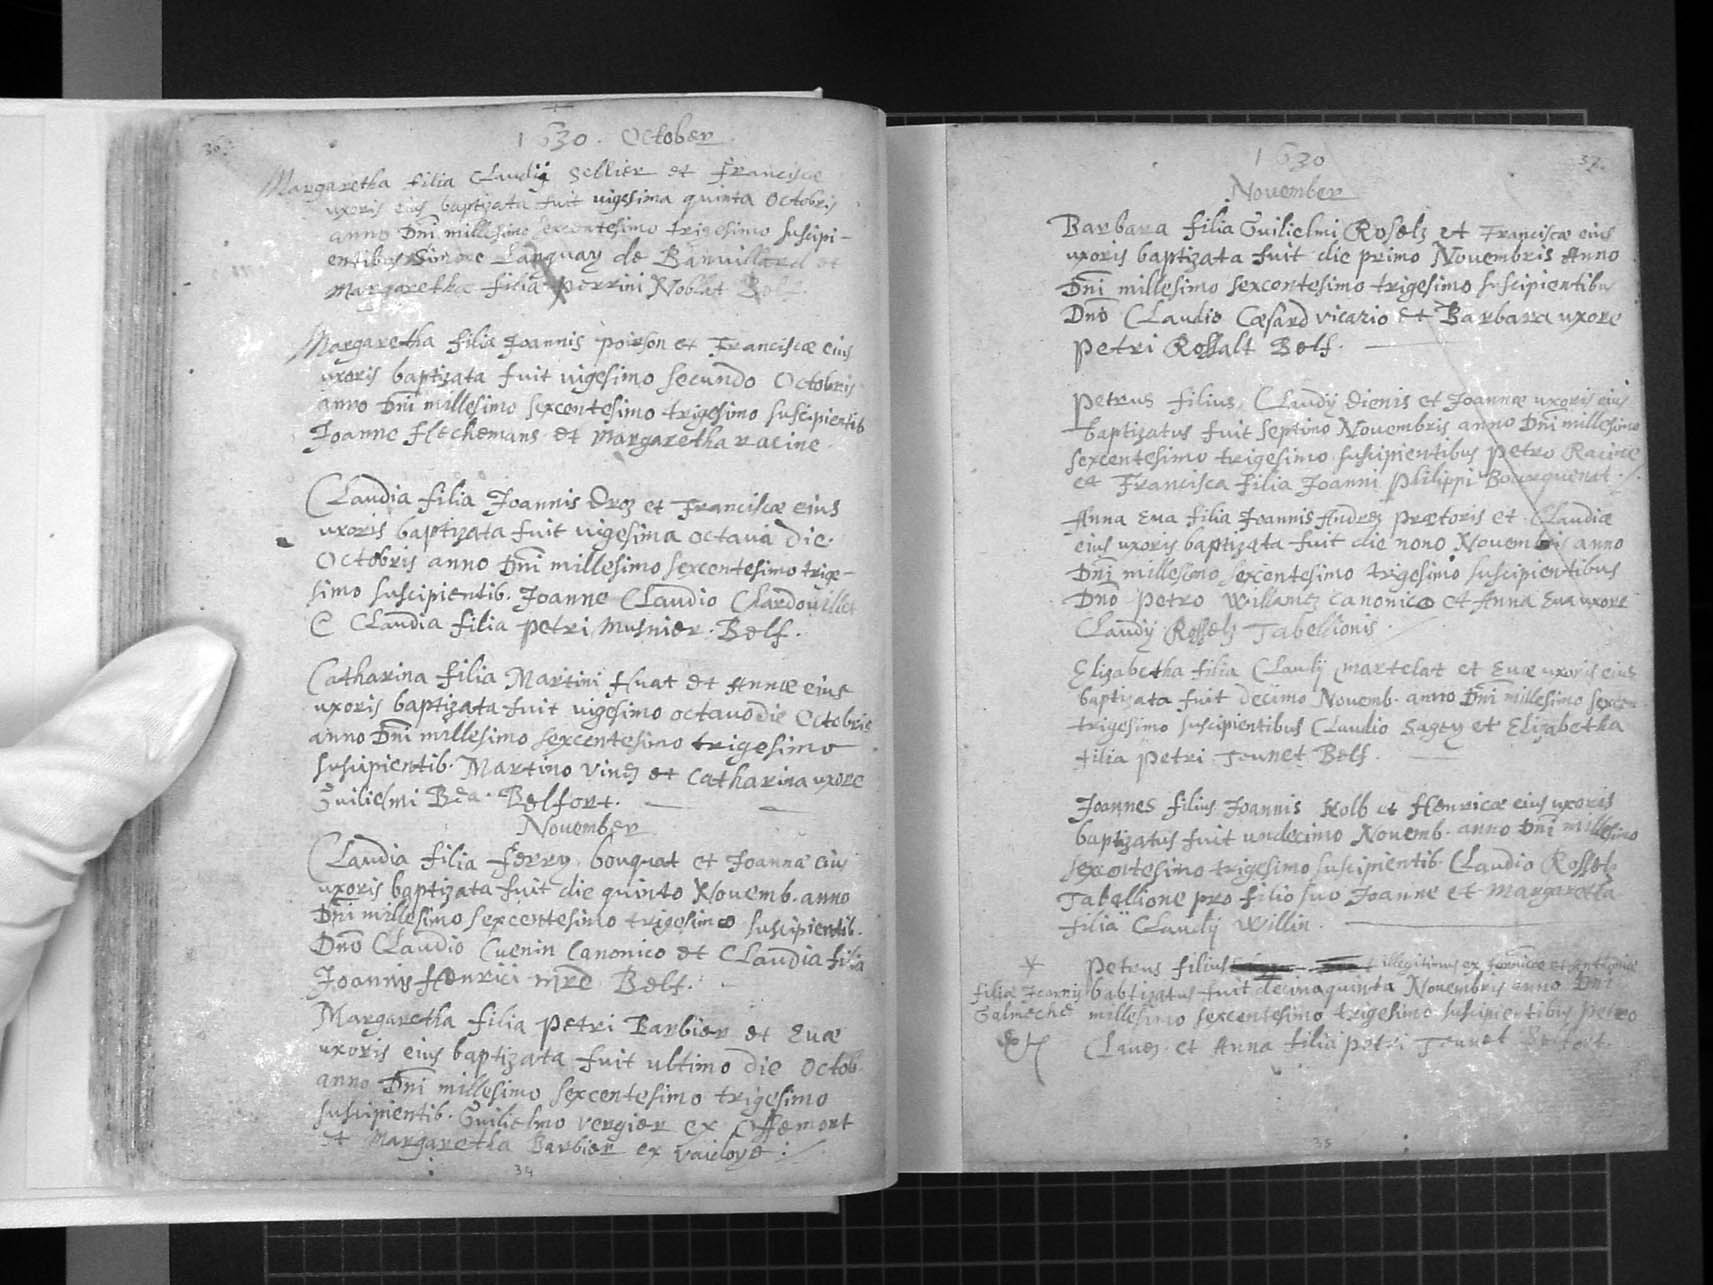 36.
1630. October
Margaretha filia Claudij Sellier et Franciscæ
uxoris eius baptizata fuit vigesima quinta Octobris
anno Dñi millesimo sexcentesimo trigesimo suscipi-
entibus Simone Languay de Banuillard et
Margaretha filia perrini Noblat Belf
Margaretha filia Joannis poirson et Franciscæ eius
uxoris baptizata fuit vigesimo secundo Octobris
anno Dñi millesimo sexcentesimo trigesimo suscipientib
Joanne Etchemans et Margaretha racine
Claudia filia Joannis Droz et Franciscæ eius
uxoris baptizata fuit vigesima octaua die
Octobris anno Dñi millesimo sexcentesimo trige-
simo suscipientib. Joanne Claudio Clardouillet
& Claudia filia petri Musnier. Belf.
Catharina filia Martini Huat et Annæ eius
uxoris baptizata fuit vigesimo octauo die Octobris
anno Dñi millesimo sexcentesimo trigesimo
suscipientib. Martino vinez et Catharina uxore
Guilielmi Bea. Belfort.
November
Claudia filia ferry bouquat et Joannæ eius
uxoris baptizata fuit die quinto Nouemb. anno
Dñi millesimo sexcentesimo trigesimo suscipientib.
Dño Claudio Cuenin Canonico et Claudia filia
Joannis Henrici Belf.
Margaretha filia petri Barbier et Euæ
uxoris eius baptizata fuit vltimo die Octob
anno Dñi millesimo sexcentesimo trigesimo
suscipientib. Guilielmo vergier ex Offemort
et Margaretha Barbier ex vaidoye
34
1630
37.
November
Barbara filia Guilielmi Roselz et Franciscæ eius
uxoris baptizata fuit die primo Nouembris Anno
Dñi millesimo sexcentesimo trigesimo suscipientibus
Dño Claudio Cæsard vicario et Barbara uxore
petri Rossalt Belf.
Petrus filius Claudij dienis et Joannæ uxoris eius
baptizatus fuit septimo Nouembris anno Dñi millesimo
sexcentesimo trigesimo suscipientibus petro Racine
et Francisca filia Joanni philippi Bourquenat
Anna Eua filia Joannis Andrez prætoris et Claudiæ
eius uxoris baptizata fuit die nono Nouembris anno
Dñi millesimo sexcentesimo trigesimo suscipientibus
Dño petro Willamez canonico et Anna Eua uxore
Claudij Rosselz Tabellionis
Elizabetha filia Claudij martelat et Euæ uxoris eius
baptizata fuit decimo Nouemb. anno Dñi millesimo sexcen
trigesimo suscipientibus Claudio Sagey et Elizabetha
filia petri Teunet Belf.
Joannes filius Joannis Kolb et Henricæ eius uxoris
baptizatus fuit undecimo Nouemb. anno Dñi millesimo
sexcentesimo trigesimo suscipientib. Claudio Rosselz
Tabellione pro filio suo Joanne et Margaretha
filia Claudij Willin.
Petrus filius illegitimus ex et Antoniæ
filiæ Joannis babtizatus fuit decima quinta Nouembris anno Dñi
Galmeche millesimo sexcentesimo trigesimo suscipientibus petro
Clauez et Anna filia petri Teunet Belfort.
35